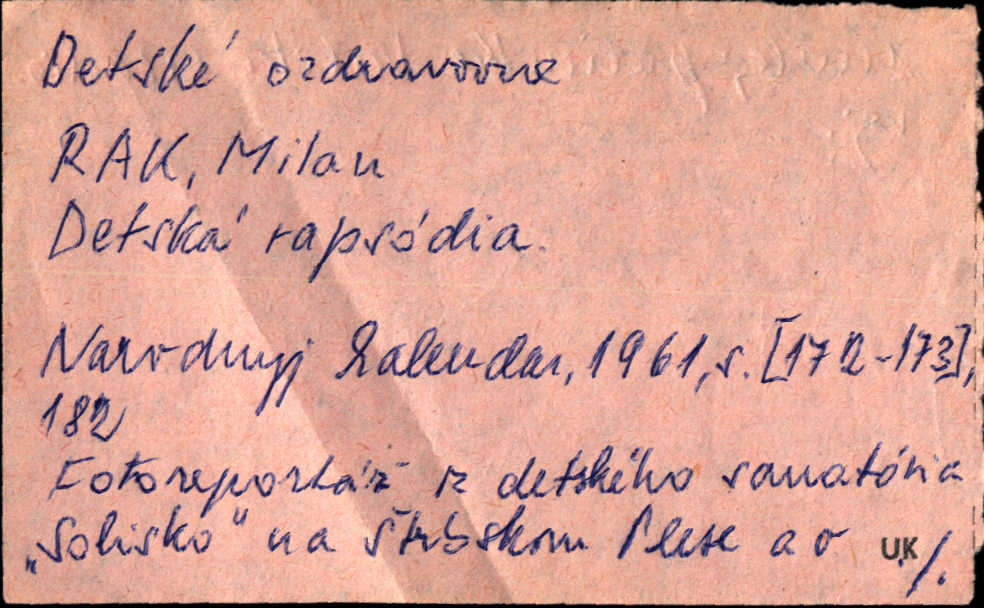 Detské ozdravovne
RAK, Milan
Detská rapsódia.
Narodnyj kalendar, 1961, s. [172-173],
182
Fotoreportáž z detského sanatória
„Solisko" na Štrbskom Plese a o
UK ./.